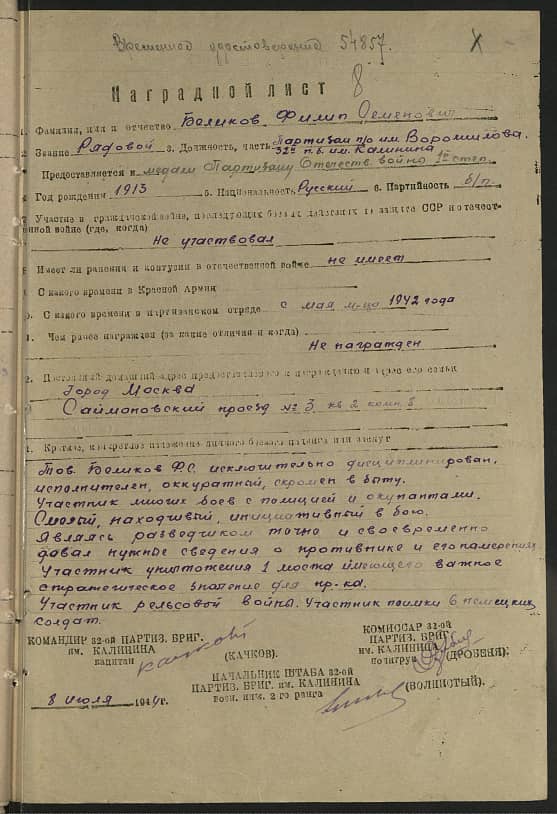 Временное удостоверение 54857. X
Наградной лист 8
1. Фамилия, имя и отчество Беликов Филип Семенович
2. Звание Рядовой 3. Должность, часть Партизан п/о им. Ворошилова.
32й п.б. им. Калинина
Предоставляется к медали Партизану Отечеств. войны 1ой степ.
4. Год рождения 1913 5. Национальность Русский 6. Партийность б/п.
7. Участие в гражданской войне, последующих боевых действиях по защите ССР и отечест-
венной войне (где, когда)
Не участвовал
8. Имеет ли ранения и контузии в отечественной войне не имеет
9. С какого времени в Красной Армии
10. С какого времени в партизанском отряде с мая м-ца 1942 года
11. Чем ранее награжден (за какие отличия и когда)
Не награжден
12. Постоянный домашний адрес предоставляемого к награждению и адрес его семьи
Город Москва
Саймоновский проезд № 3 кв 2 комн. 8
1. Краткое, конкретное изложение личного боевого подвига или заслуг
Тов. Беликов Ф.С. исключительно дисциплинирован,
исполнителен, оккуратный, скромен в быту.
Участник многих боев с полицией и окупантами.
Смелый, находчивый, инициативный в бою.
Являясь разведчиком точно и своевременно
давал нужные сведения о противнике и его намерениях.
Участник уничтожения 1 моста имеющего важное
стратегическое значение для пр-ка.
Участник рельсовой войны. Участник поимки 6 немецких
солдат.
КОМАНДИР 32-ой ПАРТИЗ. БРИГ.
им. КАЛИНИНА
капитан Качков (КАЧКОВ).
КОМИССАР 32-ой
ПАРТИЗ. БРИГ.
им. КАЛИНИНА
политрук (ДРОБЕНЯ).
НАЧАЛЬНИК ШТАБА 32-ой
ПАРТИЗ. БРИГ. им. КАЛИНИНА
воен. инж. 2 го ранга (ВОЛНИСТЫЙ).
8 июля 1944г.